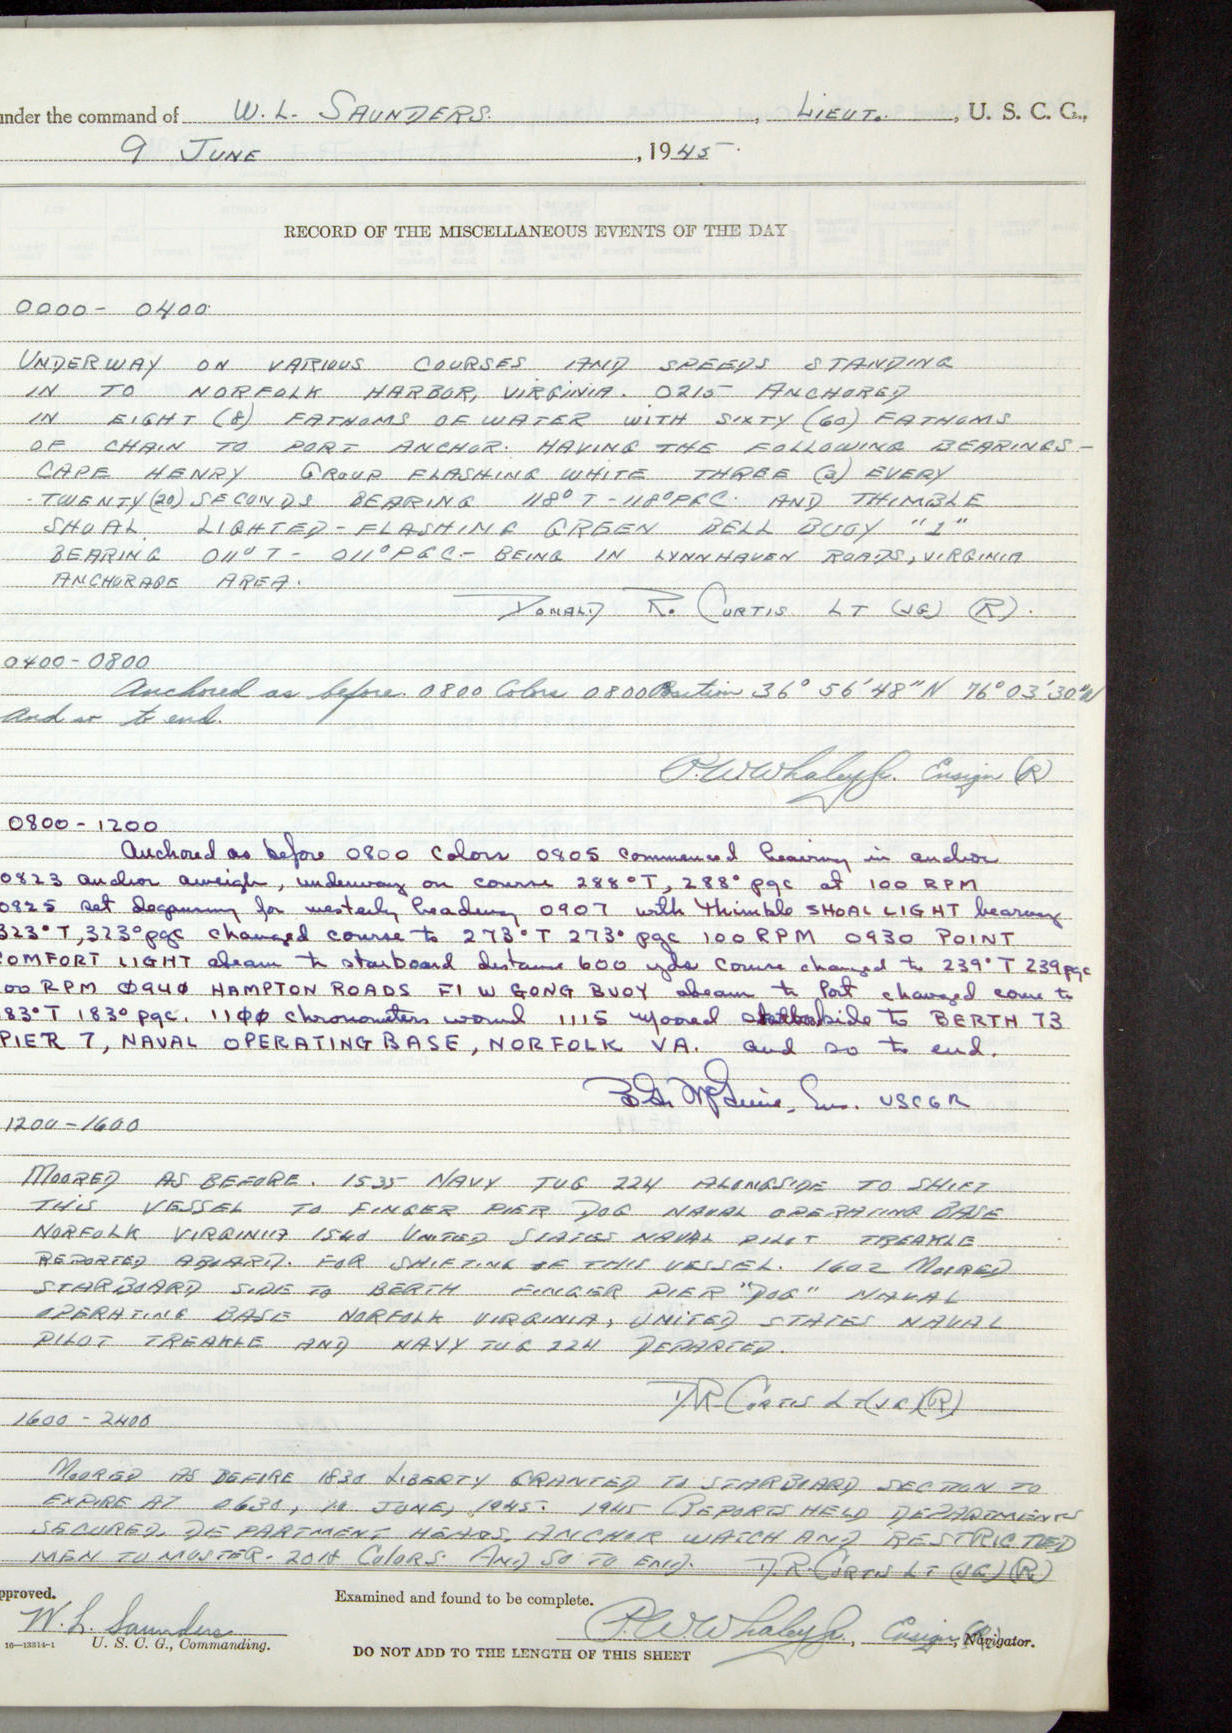 under the command of W. L. SAUNDERS. , LIEUT. , U. S. C. G.,
9 JUNE , 1945.
RECORD OF THE MISCELLANEOUS EVENTS OF THE DAY
0000 - 0400
UNDERWAY ON VARIOUS COURSES AND SPEEDS STANDING
IN TO NORFOLK HARBOR, VIRGINIA. 0215 ANCHORED
IN EIGHT (8) FATHOMS OF WATER WITH SIXTY (60) FATHOMS
OF CHAIN TO PORT ANCHOR. HAVING THE FOLLOWING BEARINGS -
CAPE HENRY GROUP FLASHING WHITE THREE (3) EVERY
TWENTY (20) SECONDS BEARING 118° T - 118° PGC. AND THIMBLE
SHOAL LIGHTED - FLASHING GREEN BELL BUOY "1"
BEARING 011° T - 011° PGC - BEING IN LYNNHAVEN ROADS, VIRGINIA
ANCHORAGE AREA.
DONALD R. CURTIS LT (JG) (R).
0400 - 0800
Anchored as before. 0800 Colors 0800 Position 36° 56' 48" N 76° 03' 30" W
And so to end.
P. W. Whaley Jr. Ensign (R)
0800 - 1200
Anchored as before 0800 Colors 0805 commenced heaving in anchor
0823 anchor aweigh, underway on course 288° T, 288° pgc at 100 RPM
0825 set degaussing for westerly heading 0907 with Thimble SHOAL LIGHT bearing
323° T, 323° pgc changed course to 273° T 273° pgc 100 RPM 0930 POINT
COMFORT LIGHT abeam to starboard distance 600 yds course changed to 239° T 239 pgc
00 RPM 0940 HAMPTON ROADS Fl W GONG BUOY abeam to Port changed course to
183° T 183° pgc. 1100 chronometers wound 1115 moored side to BERTH 73
PIER 7, NAVAL OPERATING BASE, NORFOLK VA. and so to end.
McGuire, Ens. USCGR
1200 - 1600
MOORED AS BEFORE. 1535 NAVY TUG 224 ALONGSIDE TO SHIFT
THIS VESSEL TO FINGER PIER DOG NAVAL OPERATING BASE
NORFOLK VIRGINIA 1540 UNITED STATES NAVAL PILOT TREAKLE
REPORTED ABOARD. FOR SHIFTING OF THIS VESSEL. 1602 MOORED
STARBOARD SIDE TO BERTH FINGER PIER "DOG" NAVAL
OPERATING BASE NORFOLK VIRGINIA, UNITED STATES NAVAL
PILOT TREAKLE AND NAVY TUG 224 DEPARTED.
D.R. CURTIS LT (JG) (R)
1600 - 2400
MOORED AS BEFORE 1830 LIBERTY GRANTED TO STARBOARD SECTION TO
EXPIRE AT 0630, 10 JUNE, 1945. 1945 REPORTS HELD DEPARTMENTS
SECURED. DEPARTMENT HEADS, ANCHOR WATCH AND RESTRICTED
MEN TO MUSTER. 2018 COLORS. AND SO TO END. D.R. CURTIS LT (JG) (R)
pproved.
Examined and found to be complete.
W. L. Saunders
P. W. Whaley Jr., Ensign (R), Navigator.
16—13314-1 U. S. C. G., Commanding.
DO NOT ADD TO THE LENGTH OF THIS SHEET